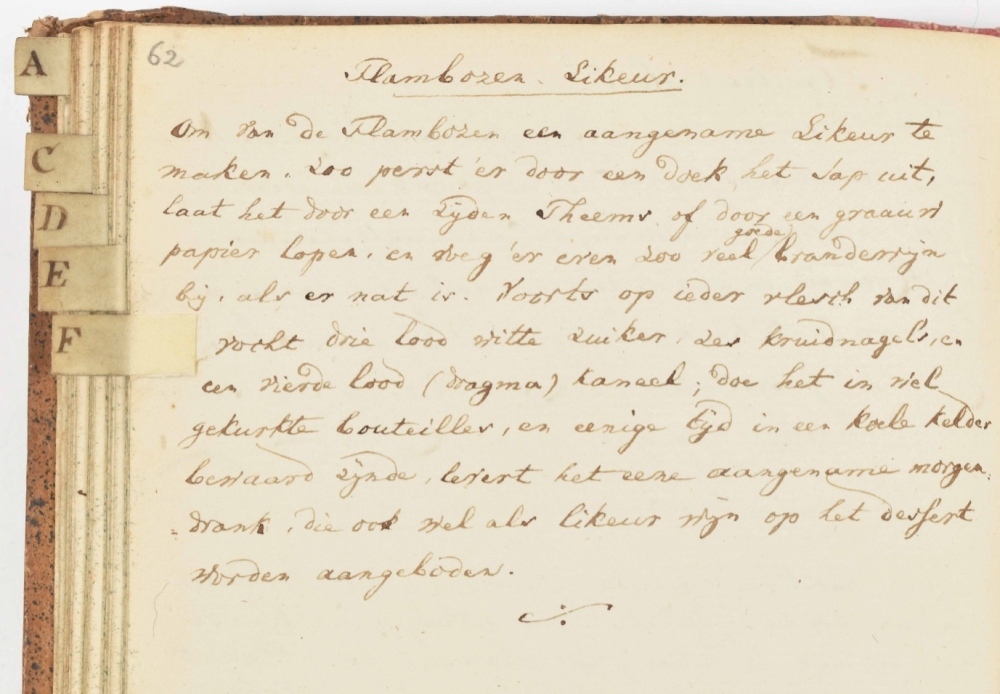 62
Flambozen Likeur.
Om van de Flambozen een aangename Likeur te
maken, zoo perst 'er door een doek het sap uit,
laat het door een zijden Theems of door een graauw
papier lopen, en weg 'er even zoo veel goede brandewijn
bij, als er nat is. Voorts op ieder vlesch van dit
vocht drie lood witte zuiker, zes kruidnagels, en
een vierde lood (dragma) kaneel; doe het in wel
gekurkte bouteilles, en eenige tijd in een koele kelder
bewaard zijnde, levert het eene aangename morgen
drank, die ook wel als likeur wijn op het dessert
worden aangeboden.
A
C
D
E
F